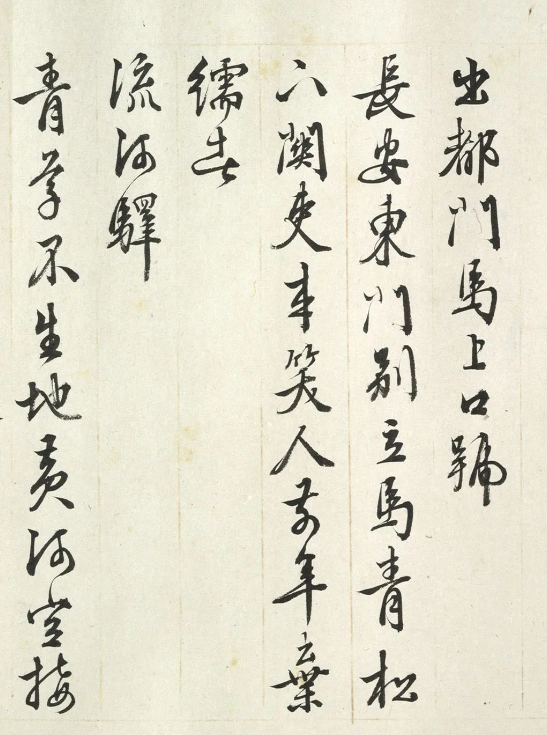 出都門馬上口號
長安東門別立馬青松
下關吏本笑人前年棄
繻者
流河驛
青草不生地黃河空接